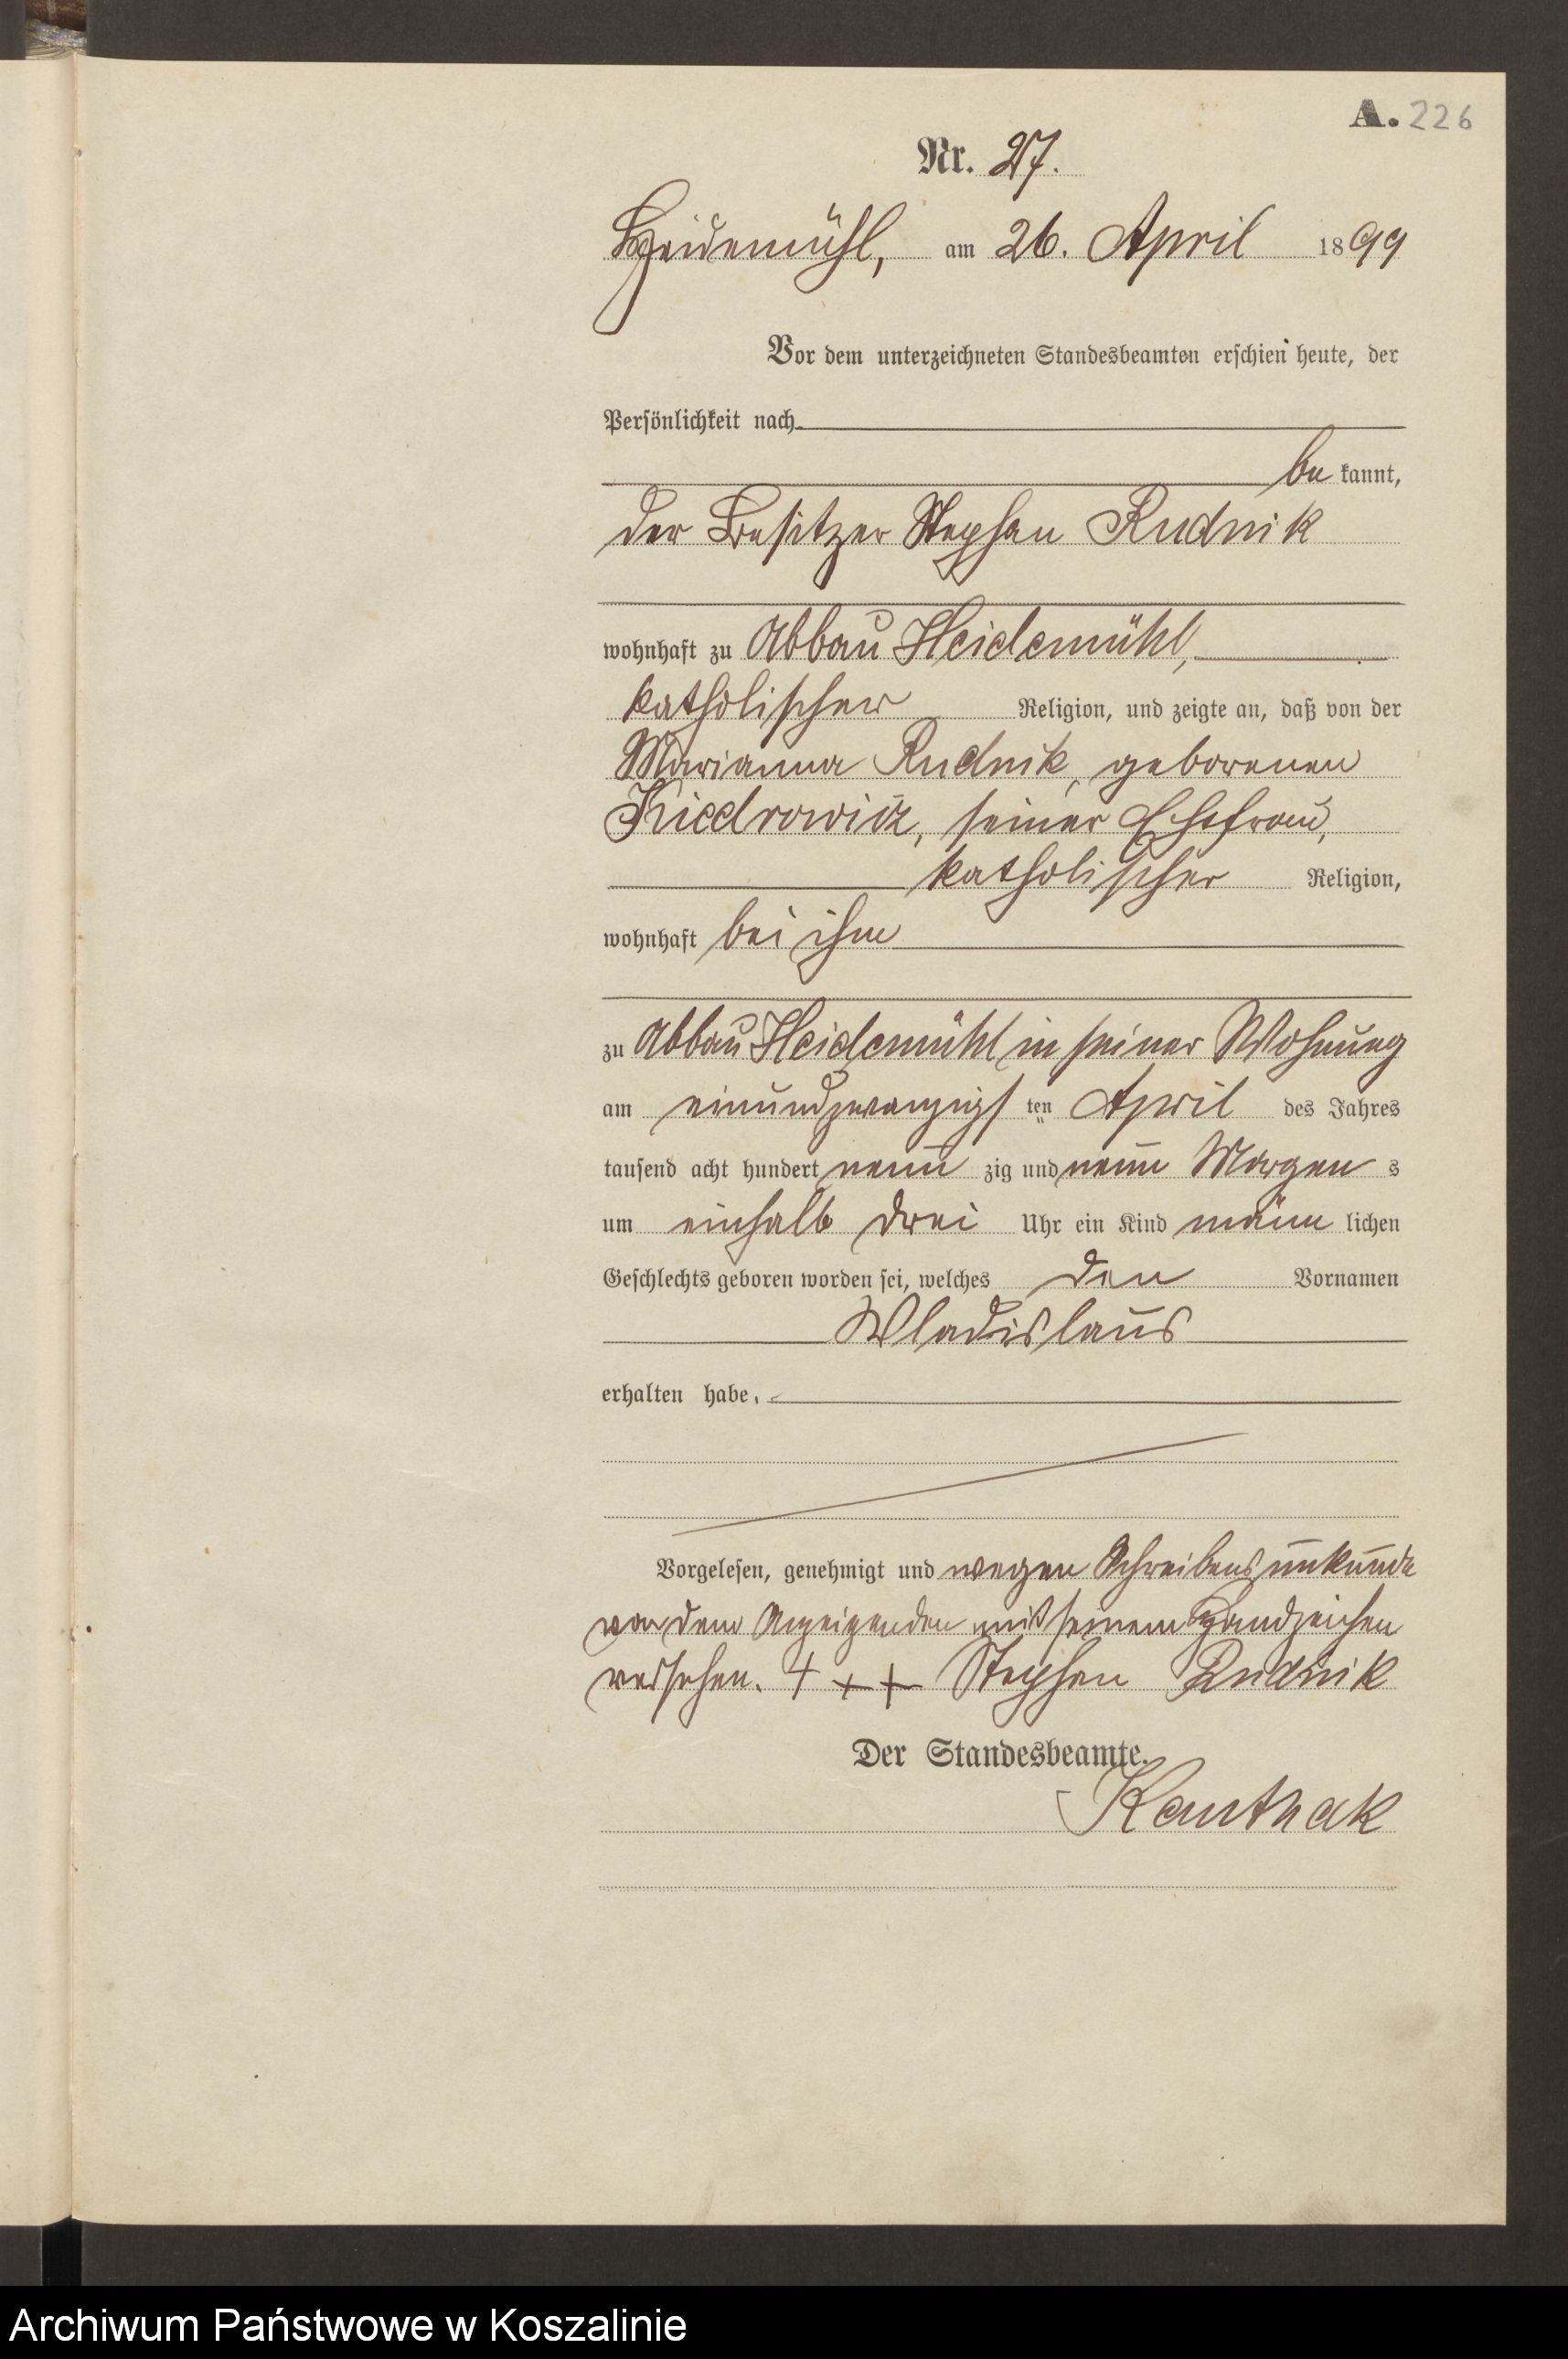 A. 226
Nr. 27.
Heidemühl, am 26. April 1899
Vor dem unterzeichneten Standesbeamten erschien heute, der
Persönlichkeit nach
be kannt,
der Besitzer Stephan Rudnik
wohnhaft zu Abbau Heidemühl,
katholischer Religion, und zeigte an, daß von der
Marianna Rudnik, geborenen
Kiedrowicz, seiner Ehefrau,
katholischer Religion,
wohnhaft bei ihm
zu Abbau Heidemühl in seiner Wohnung
am einundzwanzigs ten April des Jahres
tausend acht hundert neun zig und neun Morgen s
um einhalb drei Uhr ein Kind männ lichen
Geschlechts geboren worden sei, welches den Vornamen
Wladislaus
erhalten habe.
Vorgelesen, genehmigt und wegen Schreibensunkunde
von dem Anzeigenden mit seinem Handzeichen
versehen. + + + Stephan Rudnik
Der Standesbeamte.
Kauthak
Archiwum Państwowe w Koszalinie